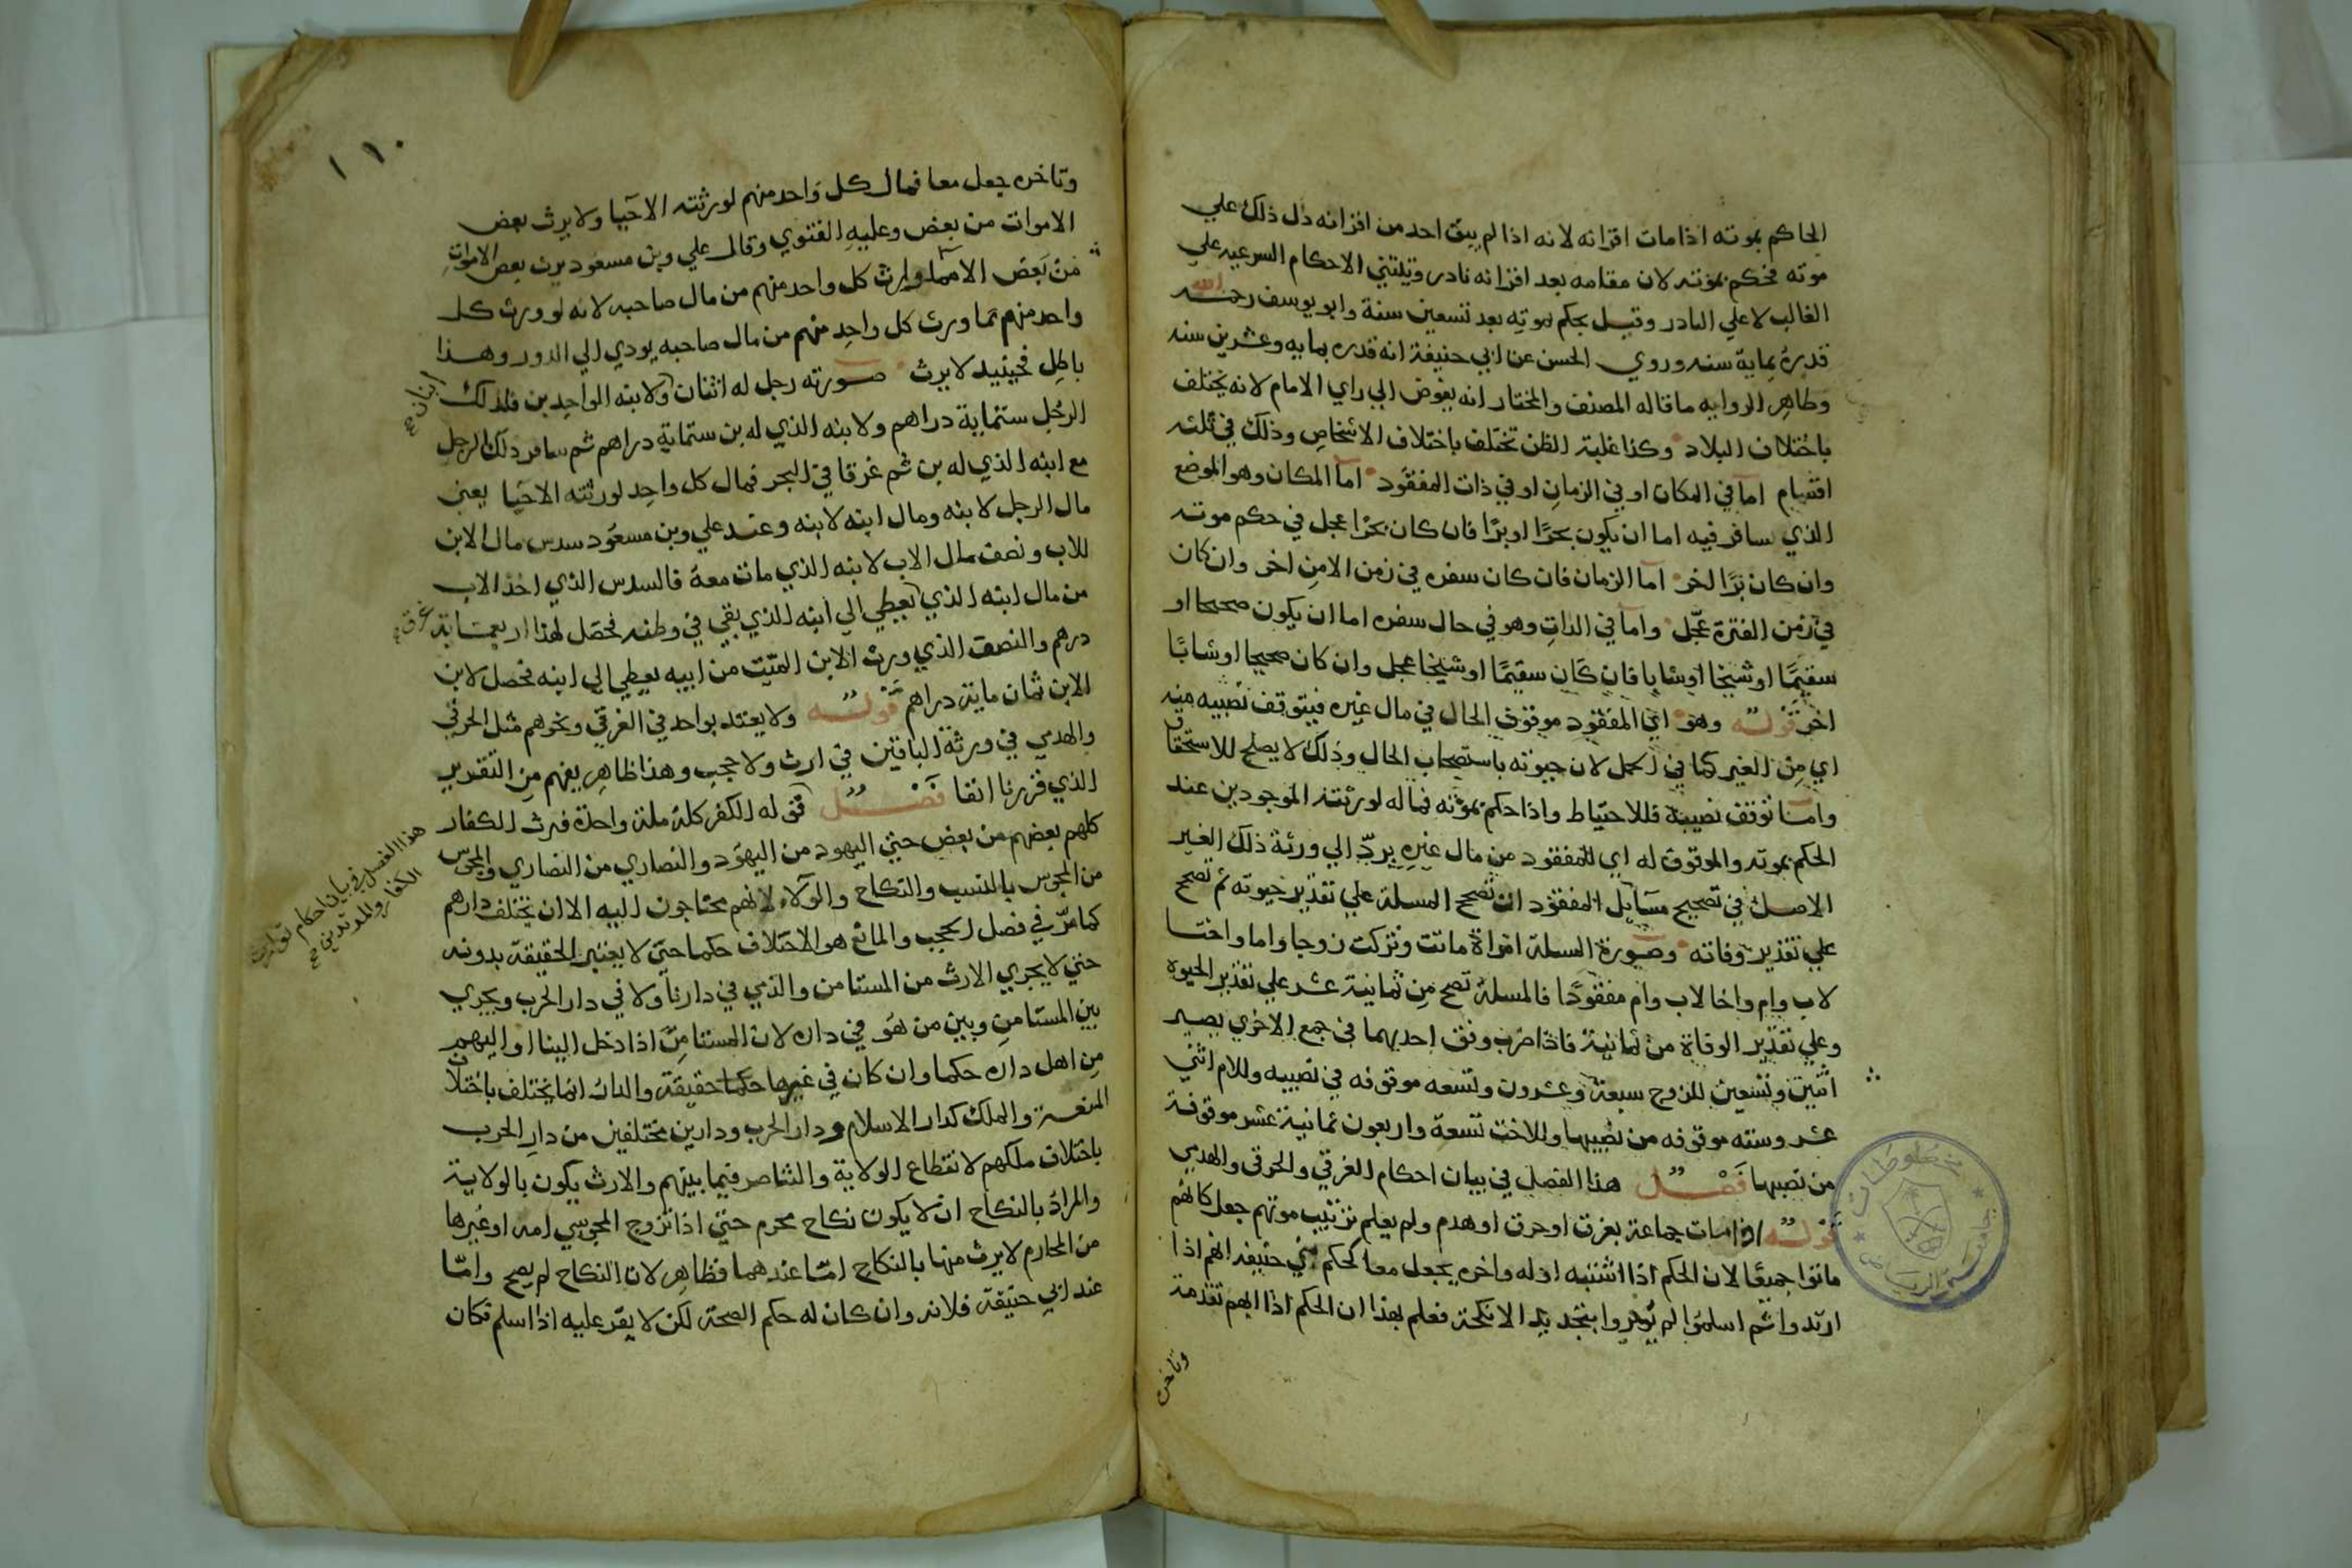 الحاكم بموته اذا مات اقرانه لانه اذا لم يبق احد من اقرانه دل ذلك علي
موته فحكم بموته لان مقامه بعد اقرانه نادر وتبتني الاحكام الشرعيه علي
الغالب لا علي النادر وقيل يحكم بموته بعد تسعين سنة وابو يوسف رحمه الله
قدره بماية سنه وروي الحسن عن ابي حنيفة انه قدره بمايه وعشرين سنه
وظاهر الروايه ما قاله المصنف والمختار انه يفوض الي راي الامام لانه يختلف
باختلاف البلاد وكذا غلبة الظن تختلف باختلاف الاشخاص وذلك في ثلثه
اقسام اما في المكان او في الزمان او في ذات المفقود اما المكان وهو الموضع
الذي سافر فيه اما ان يكون بحرا او برا فان كان بحرا عجل في حكم موته
وان كان برا اخر اما الزمان فان كان سفره في زمن الامن اخر وان كان
في زمن الفترة عجل واما في الذات وهو في حال سفره اما ان يكون صحيحا او
سقيما او شيخا او شابا فان كان سقيما او شيخا عجل وان كان صحيحا او شابا
اخر قوله وهو اي المفقود موقوف الحال في مال غيره فيتوقف نصيبه منه
اي من الغير كما في الحمل لان حيوته باستصحاب الحال وذلك لا يصلح للاستحقاق
وامـا توقف نصيبه فللاحتياط واذا حكم بموته فماله لورثته الموجودين عند
الحكم بموته والموقوف له اي للمفقود من مال غيره يرد الي ورثة ذلك الغير
الاصل في تصحيح مسايل المفقود ان تصحح المسلة علي تقدير حيوته ثم تصحح
علي تقدير وفاته وصورة المسلة امراة ماتت وتركت زوجا واما واختـا
لاب وام واخا لاب وام مفقودا فالمسلة تصح من ثمانية عشر علي تقدير الحيوة
وعلي تقدير الوفاة من ثمانية فاذا ضرب وفق احديهما في جمع الاخري يصير
اثنين وتسعين للزوج سبعة وعشرون وتسعه موقوفه في نصيبه وللام اثني
عشر وسته موقوفه من نصيبها وللاخت تسعة واربعون ثمانية عشر موقوفة
من نصيبها فصـل هذا الفصل في بيان احكام الغرقي والحرقي والهدمي
قوله اذا مات جماعة بغرق او حرق او هدم ولم يعلم ترتيب موتهم جعل كانهم
ماتوا جميعا لان الحكم اذا اشتبه اوله واخره يجعل معا كحكم بني حنيفه انهم اذا
ارتدوا ثم اسلموا لم يؤمروا بتجديد الانكحة فعلم بهذا ان الحكم اذا ابهم تقدمة
وتاخره
مخطوطات
١١٠
وتاخره جعل معا فمال كل واحد منهم لورثته الاحيا ولا يرث بعض
الاموات من بعض وعليه الفتوي وقال علي وبن مسعود يرث بعض الاموات
من بعض الا مما وارث كل واحد منهم من مال صاحبه لانه لو ورث كل
واحد منهم مما ورث كل واحد منهم من مال صاحبه يودي الي الدور وهـذا
باطل فحينيد لا يرث صـورته رجل له اثنان ولابنه الواحد بن فلذلك
ابنان صح
الرجل ستماية دراهم ولابنه الذي له بن ستماية دراهم ثم سافر ذلك الرجل
مع ابنه الذي له بن ثم غرقا في البحر فمال كل واحد لورثته الاحيا يعني
مال الرجل لابنه ومال ابنه لابنه وعند علي وبن مسعود سدس مال الابن
للاب ونصف مال الاب لابنه الذي مات معه فالسدس الذي اخذ الاب
من مال ابنه الذي يعطي الي ابنه الذي بقي في وطنه فحصل لهذا اربعمـاية
غرق صح
درهم والنصف الذي ورث الابن الميت من ابيه يعطي الي ابنه فحصل لابن
الابن ثمان ماية دراهم قوله ولا يعتد بواحد في الغرقي ونحوهم مثل الحرقي
والهدمي في ورثة الباقين في ارث ولا حجب وهذا ظاهر يفهم من التقرير
الذي قررنا انفا فصـل قوله الكفر كله ملة واحدة فيرث الكفار
كلهم بعضهم من بعض حتي اليهود من اليهود والنصاري من النصاري والمجوس
هذا الفصل في بيان احكام توارث
الكفار والمرتدين صح
من المجوس بالنسب والنكاح والولاء لانهم محتاجون اليه الا ان تختلف دارهم
كما مر في فصل الحجب والمانع هو الاختلاف حكما حتي لا يعتبر الحقيقة بدونه
حتي لا يجري الارث من المستامن والذمي في دارنا ولا في دار الحرب ويجري
بين المستامن وبين من هو في داره لان المستامن اذا دخل الينا او اليهم
من اهل داره حكما وان كان في غيرها حكما حقيقة والدار انما يختلف باختلاف
المنعـة والملك كدار الاسلام ودار الحرب ودارين مختلفين من دار الحرب
باختلاف ملكهم لانقطاع الولاية والتناصر فيما بينهم والارث يكون بالولاية
والمراد بالنكاح ان لا يكون نكاح محرم حتي اذا تزوج المجوسي امه او غيرها
من المحارم لا يرث منها بالنكاح امـا عندهما فظاهر لان النكاح لم يصح وامّا
عند ابي حنيفة فلانه وان كان له حكم الصحة لكن لا يقر عليه اذا اسلم فكان